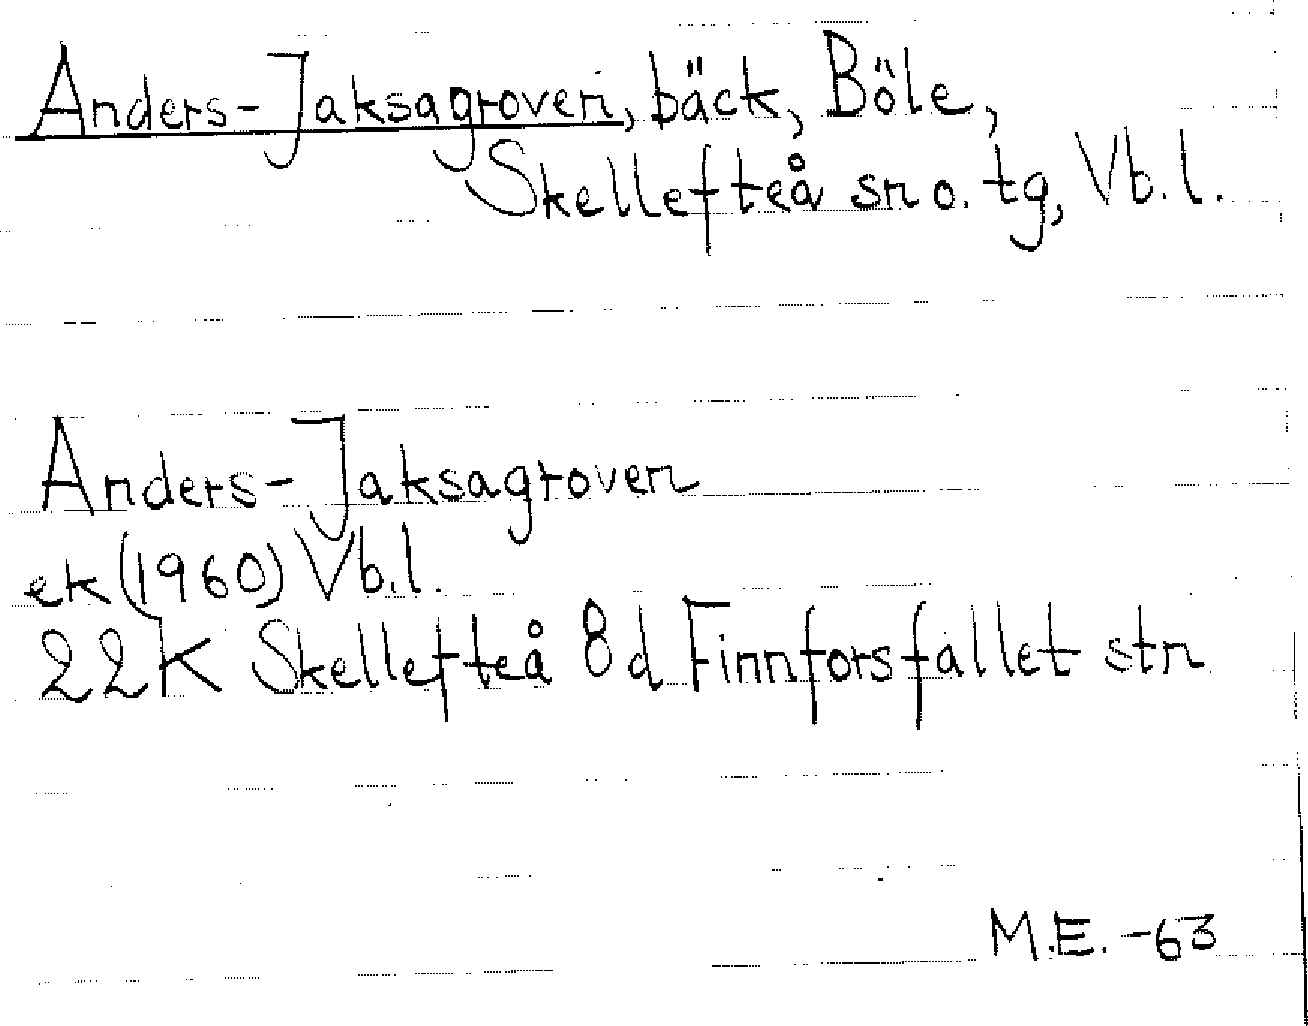 Anders-Jaksagroven, bäck, Böle,
Skellefteå sn o. tg, Vb.l.
Anders-Jaksagroven
ek (1960) Vb.l.
22K Skellefteå 8d Finnforsfallet stn
M.E. -63